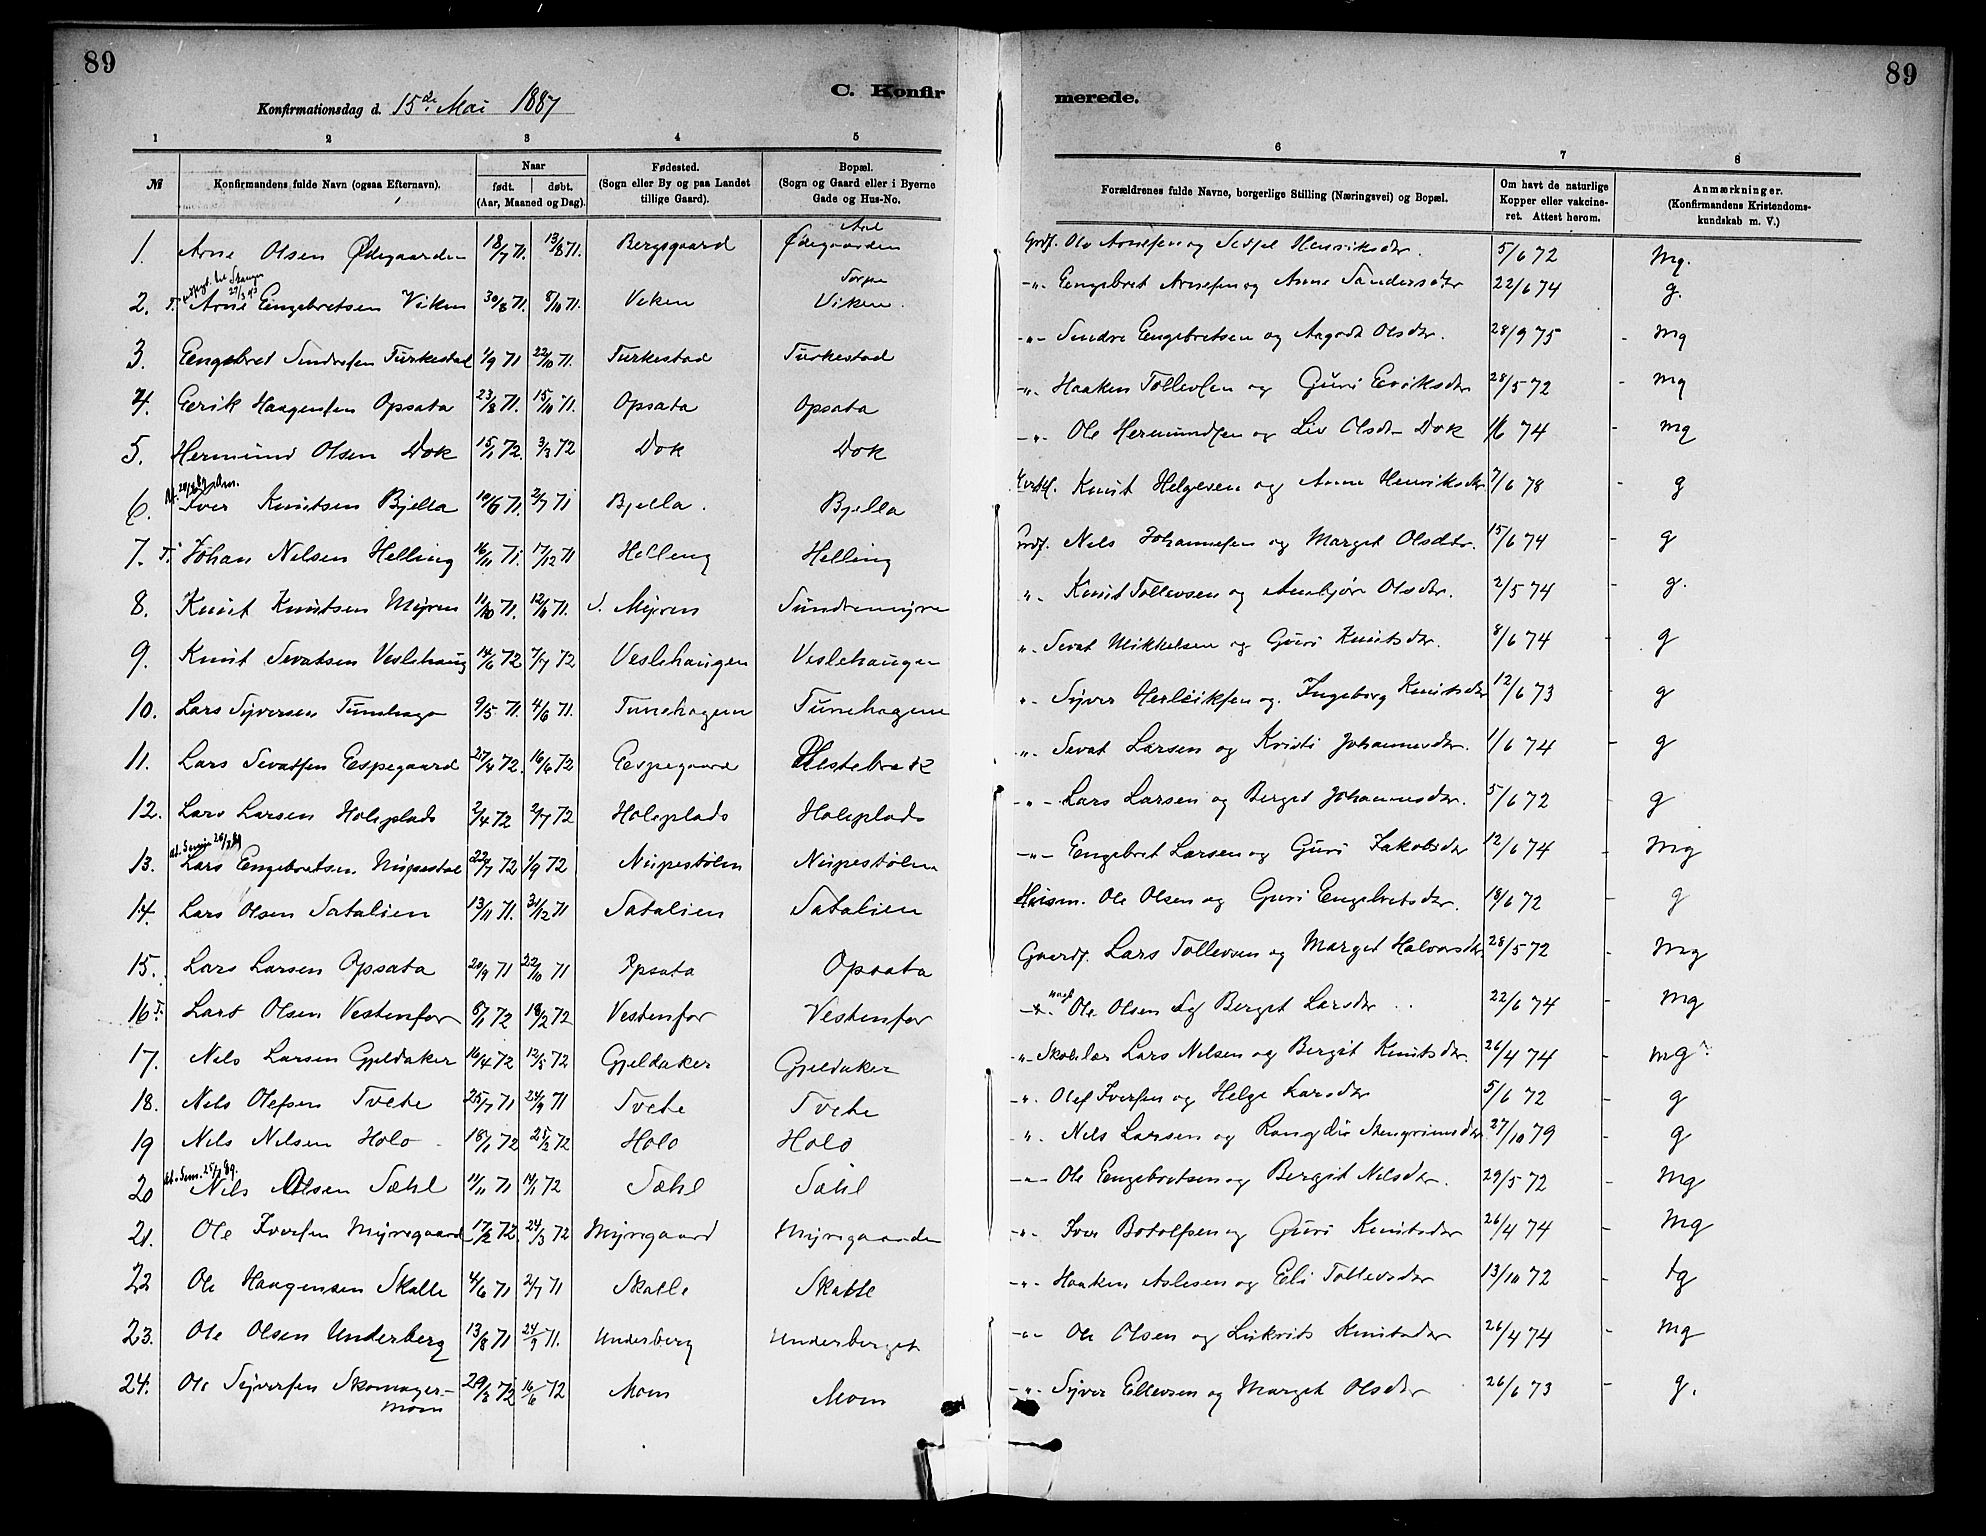 89
89
Konfirmationsdag d. 15de Mai 1887
C. Konfirmerede.
1 2 3 4 5 6 7 8
№ Konfirmandens fulde Navn (ogsaa Efternavn). Naar født. døbt. (Aar, Maaned og Dag). Fødested. (Sogn eller By og paa Landet tillige Gaard). Bopæl. (Sogn og Gaard eller i Byerne Gade og Hus-No. Forældrenes fulde Navne, borgerlige Stilling (Næringsvei) og Bopæl. Om havt de naturlige Kopper eller vakcineret. Attest herom. Anmærkninger. (Konfirmandens Kristendomskundskab m. V.)
1. Arne Olsen Ødegaarden 18/7 71. 13/8 71. Bergsgaard Aal Ødegaarden Grdf. Ole Arnesen og Henriksdtr. 5/6 72 Mg.
2. T. Arne Engebretsen Viken 30/8 71. 8/10 71. Viken Torpe Viken. -"- Engebret Arnesen og Anne Sandersdtr 22/6 74 g.
3. Engebret Sindresen Turkestad 1/9 71 22/10 71. Turkestad Turkestad -"- Sindre Engebretsen og Aagodt Olsdtr. 28/9 75 - Mg
4. Eerik Haagensen Opsata 23/8 71. 15/10 71. Opsata Opsata -"- Haaken Tollevsen og Guri Eeriksdtr 28/5 72 - Mg
5. Hermund Olsen Dok 15/1 72. 3/3 72 Dok Dok -"- Ole Hermundsen og Liv Olsdtr Dok 1/6 74 - Mg
6. Iver Knutsen Bjella 10/6 71. 2/7 71 Bjella. Bjella Knut Helgesen og Anne Henriksdtr 7/6 78 - g
7. T. Johan Nilsen Helling 16/11 71. 17/12 71 Helling Helling Grdf. Nils Johannesen og Marget Olsdtr. 15/6 74 - g
8. Knut Knutsen Myren 11/10 71. 12/11 71. S. Myren Sundremyre "- Knut Tollevsen og Annbjør Olsdtr. 2/5 74 - g.
9. Knut Sevatsen Veslehaug 14/6 72 7/7 72 Veslehaugen Veslehaugen "- Sevat Mikkelsen og Guri Knutsdtr. 8/6 74 - g
10. Lars Syversen Tunehage 9/5 71. 4/6 71. Tunehagen Tunehagen "- Syver Herleiksen og Ingeborg Knutsdtr 12/6 73 - g
11. Lars Sevatsen Espegaard 27/4 72. 16/6 72 Espegaard Hestebrek "- Sevat Larsen og Kristi Johannesdtr. 1/6 74 - g
12. Lars Larsen Holeplads 2/4 72 2/7 72 Holeplads Holeplads -"- Lars Larsen og Berget Johannesdtr. 5/6 72 - g
13. Lars Engebretsen Nupestøl 22/7 72 1/9 72 Nupestølen Nupestølen -"- Engebret Larsen og Guri Jakobsdtr 12/6 74 - Mg
14. Lars Olsen Satalien 13/11 71. 31/12 71 Satalien Satalien Husm. Ole Olsen og Guri Engebretsdtr. 18/6 72 - g
15. Lars Larsen Opsata 20/9 71 22/10 71 Opsata Opsata Gaardf. Lars Tollevsen og Marget Halvorsdtr. 28/5 72 - Mg
16 T. Lars Olsen Vestenfor 8/1 72 18/2 72 Vestenfor Vestenfor Ole Olsen og Berget Larsdtr 22/6 74 - Mg
17. Nils Larsen Gjeldaker 16/4 72 12/5 72 Gjeldaker Gjeldaker "- Skolelær Lars Nilsen og Bergit Knutsdtr. 26/4 74 - Mg
18. Nils Olefsen Tvete 25/7 71 24/9 71 Tvete Tvete -"- Olef Iversen og Helge Larsdtr 5/6 72 - g
19 Nils Nilsen Holo 18/1 72 25/2 72 Holo Holo "- Nils Larsen og Rangdi Stengrimsdtr 27/10 79 - g
20 Nils Olsen Sæhl 11/11 71 14/1 72 Sæhl Sæhl -"- Ole Engebretsen og Bergit Nilsdtr. 29/5 72 - Mg
21. Ole Iversen Myregaard 17/2 72. 24/3 72 Myregaard Myregaarden -"- Iver Botolfsen og Guri Knutsdtr 26/4 74 - Mg
22 Ole Haagensen Skalle 4/6 71 2/7 71 Skalle Skalle -"- Haaken Aslesen og Eli Tollevsdtr 13/10 72 - tg
23. Ole Olsen Underberg 13/8 71 24/9 71. Underberg Underberget -"- Ole Olsen og Liukrits Knutsdtr 26/4 74 - Mg
24. Ole Syversen Skomager-moen 29/3 72 16/6 72 Moen Moen -"- Syver Ellevsen og Marget Olsdtr 26/6 73 - g.